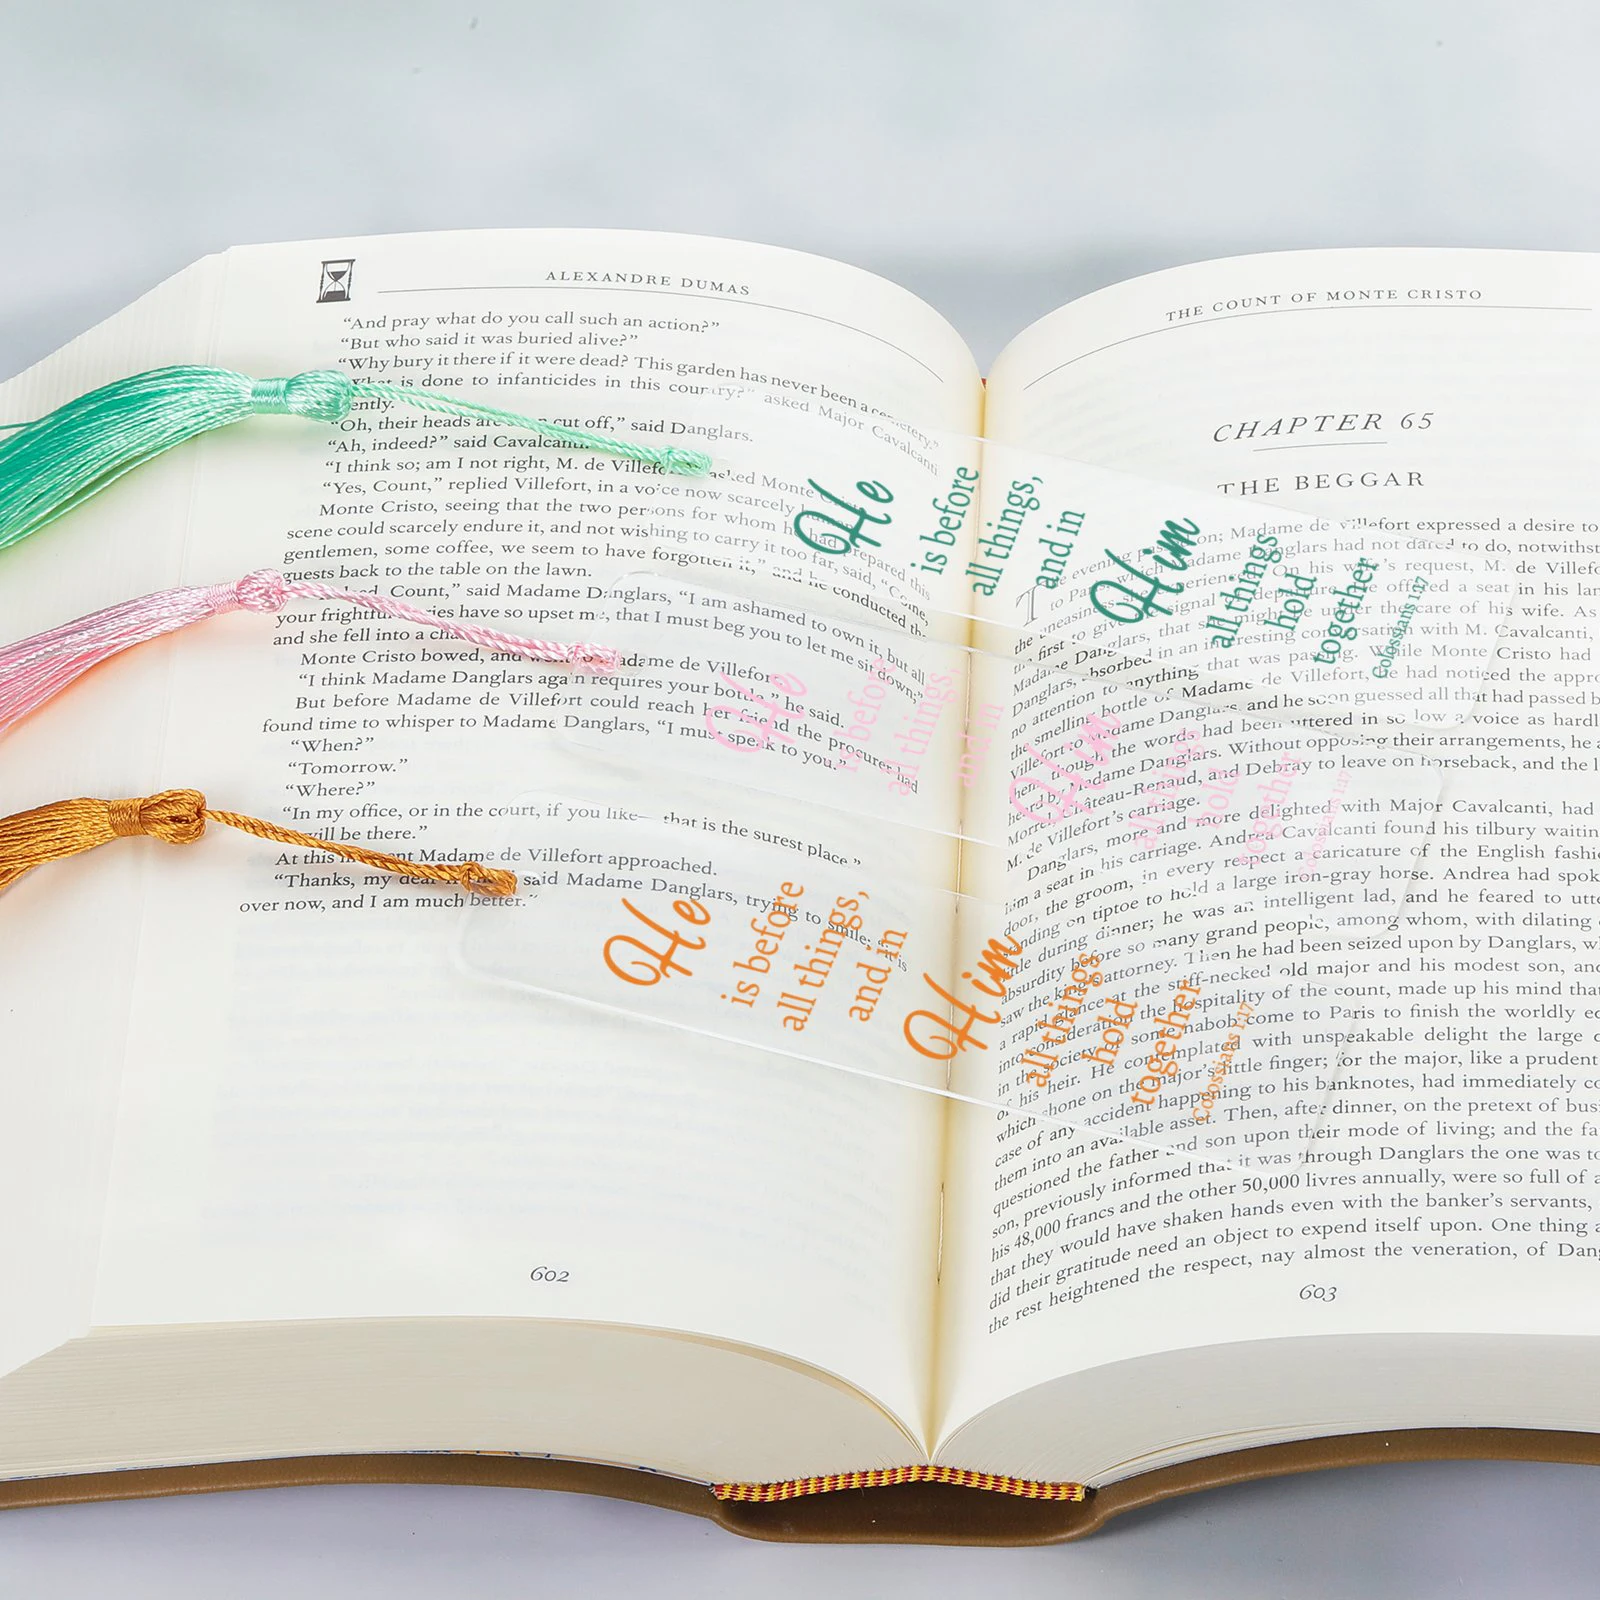 ALEXANDRE DUMAS
“And pray what do you call such an action?”
“But who said it was buried alive?”
“Why bury it there if it were dead? This garden has never been a cemetery.”
“What is done to infanticides in this country?” asked Major Cavalcanti
ently.
“Oh, their heads are cut off,” said Danglars.
“Ah, indeed?” said Cavalcanti.
“I think so; am I not right, M. de Villefort asked Monte Cristo
“Yes, Count,” replied Villefort, in a voice now scarcely human.
Monte Cristo, seeing that the two persons for whom he had prepared this
scene could scarcely endure it, and not wishing to carry it too far, said, “Come,
gentlemen, some coffee, we seem to have forgotten it,” and he conducted the
guests back to the table on the lawn.
Count,” said Madame Danglars, “I am ashamed to own it, but all
your frightful ries have so upset me, that I must beg you to let me sit down;”
and she fell into a
Monte Cristo bowed, and went to Madame de Villefort
“I think Madame Danglars again requires your bottle,” he said.
But before Madame de Villefort could reach her friend the procurer had
found time to whisper to Madame Danglars, “I must speak to you.”
“When?”
“Tomorrow.”
“Where?”
“In my office, or in the court, if you like— that is the surest place.”
will be there.”
At this moment Madame de Villefort approached.
“Thanks, my dear said Madame Danglars, trying to smile; “it is
over now, and I am much better.”
602
THE COUNT OF MONTE CRISTO
CHAPTER 65
THE BEGGAR
Madame de Villefort expressed a desire to
Madame Danglars had not dared to do, notwithst
On his wife’s request, M. de Villefo
he offered a seat in his lan
under the care of his wife. As
Danglars, absorbed in an interesting conversation with M. Cavalcanti,
no attention to anything that was passing. While Monte Cristo had
the smelling bottle of Madame de Villefort, he had noticed the appro
Villefort to Madame Danglars, and he soon guessed all that had passed b
though the words had been uttered in so low a voice as hardl
Madame Danglars. Without opposing their arrangements, he a
Morrel, Château-Renaud, and Debray to leave on horseback, and the l
M. de Villefort’s carriage.
Danglars, more and more delighted with Major Cavalcanti, had
him a seat in his carriage. Andrea Cavalcanti found his tilbury waitin
door, the groom, in every respect a caricature of the English fashi
standing on tiptoe to hold a large iron-gray horse. Andrea had spok
little during dinner; he was an intelligent lad, and he feared to utte
absurdity before so many grand people, among whom, with dilating
saw the king’s attorney. Then he had been seized upon by Danglars, w
a rapid glance at the stiff-necked old major and his modest son, and
into consideration the hospitality of the count, made up his mind tha
in the society of some nabob come to Paris to finish the worldly ed
of his heir. He contemplated with unspeakable delight the large d
which shone on the major’s little finger; for the major, like a prudent
case of any accident happening to his banknotes, had immediately co
them into an available asset. Then, after dinner, on the pretext of busi
questioned the father and son upon their mode of living; and the fa
son, previously informed that it was through Danglars the one was to
his 48,000 francs and the other 50,000 livres annually, were so full of a
that they would have shaken hands even with the banker’s servants,
did their gratitude need an object to expend itself upon. One thing a
the rest heightened the respect, nay almost the veneration, of Dang
603
He
is before
all things,
and in
Him
all things
hold
together
Colossians 1:17
He
is before
all things,
and in
Him
all things
hold
together
Colossians 1:17
He
is before
all things,
and in
Him
all things
hold
together
Colossians 1:17